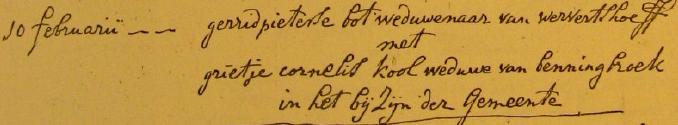 10 februarii -- gerridpieterse bot weduwenaar van wervertshoeff
met
grietje cornelis kool weduwe van benningbroek
in het bij Zijn der Gemeente